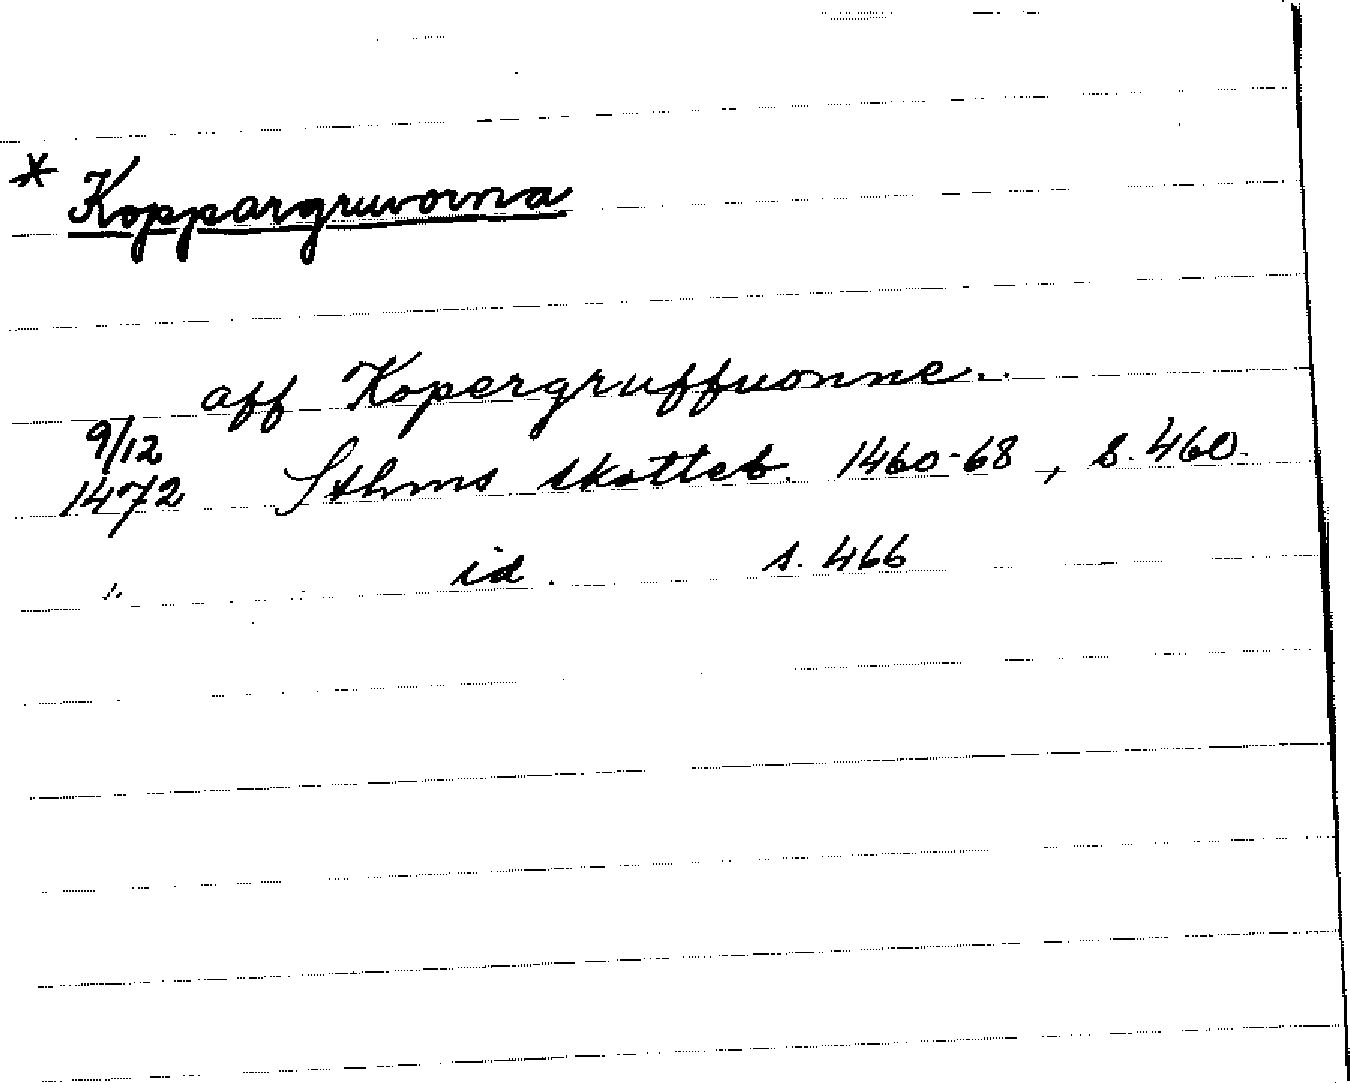 * Koppargruvorna
aff Kopergruffuonne.
9/12
1472 Sthms skotteb. 1460-68, s. 460.
" id. s. 466